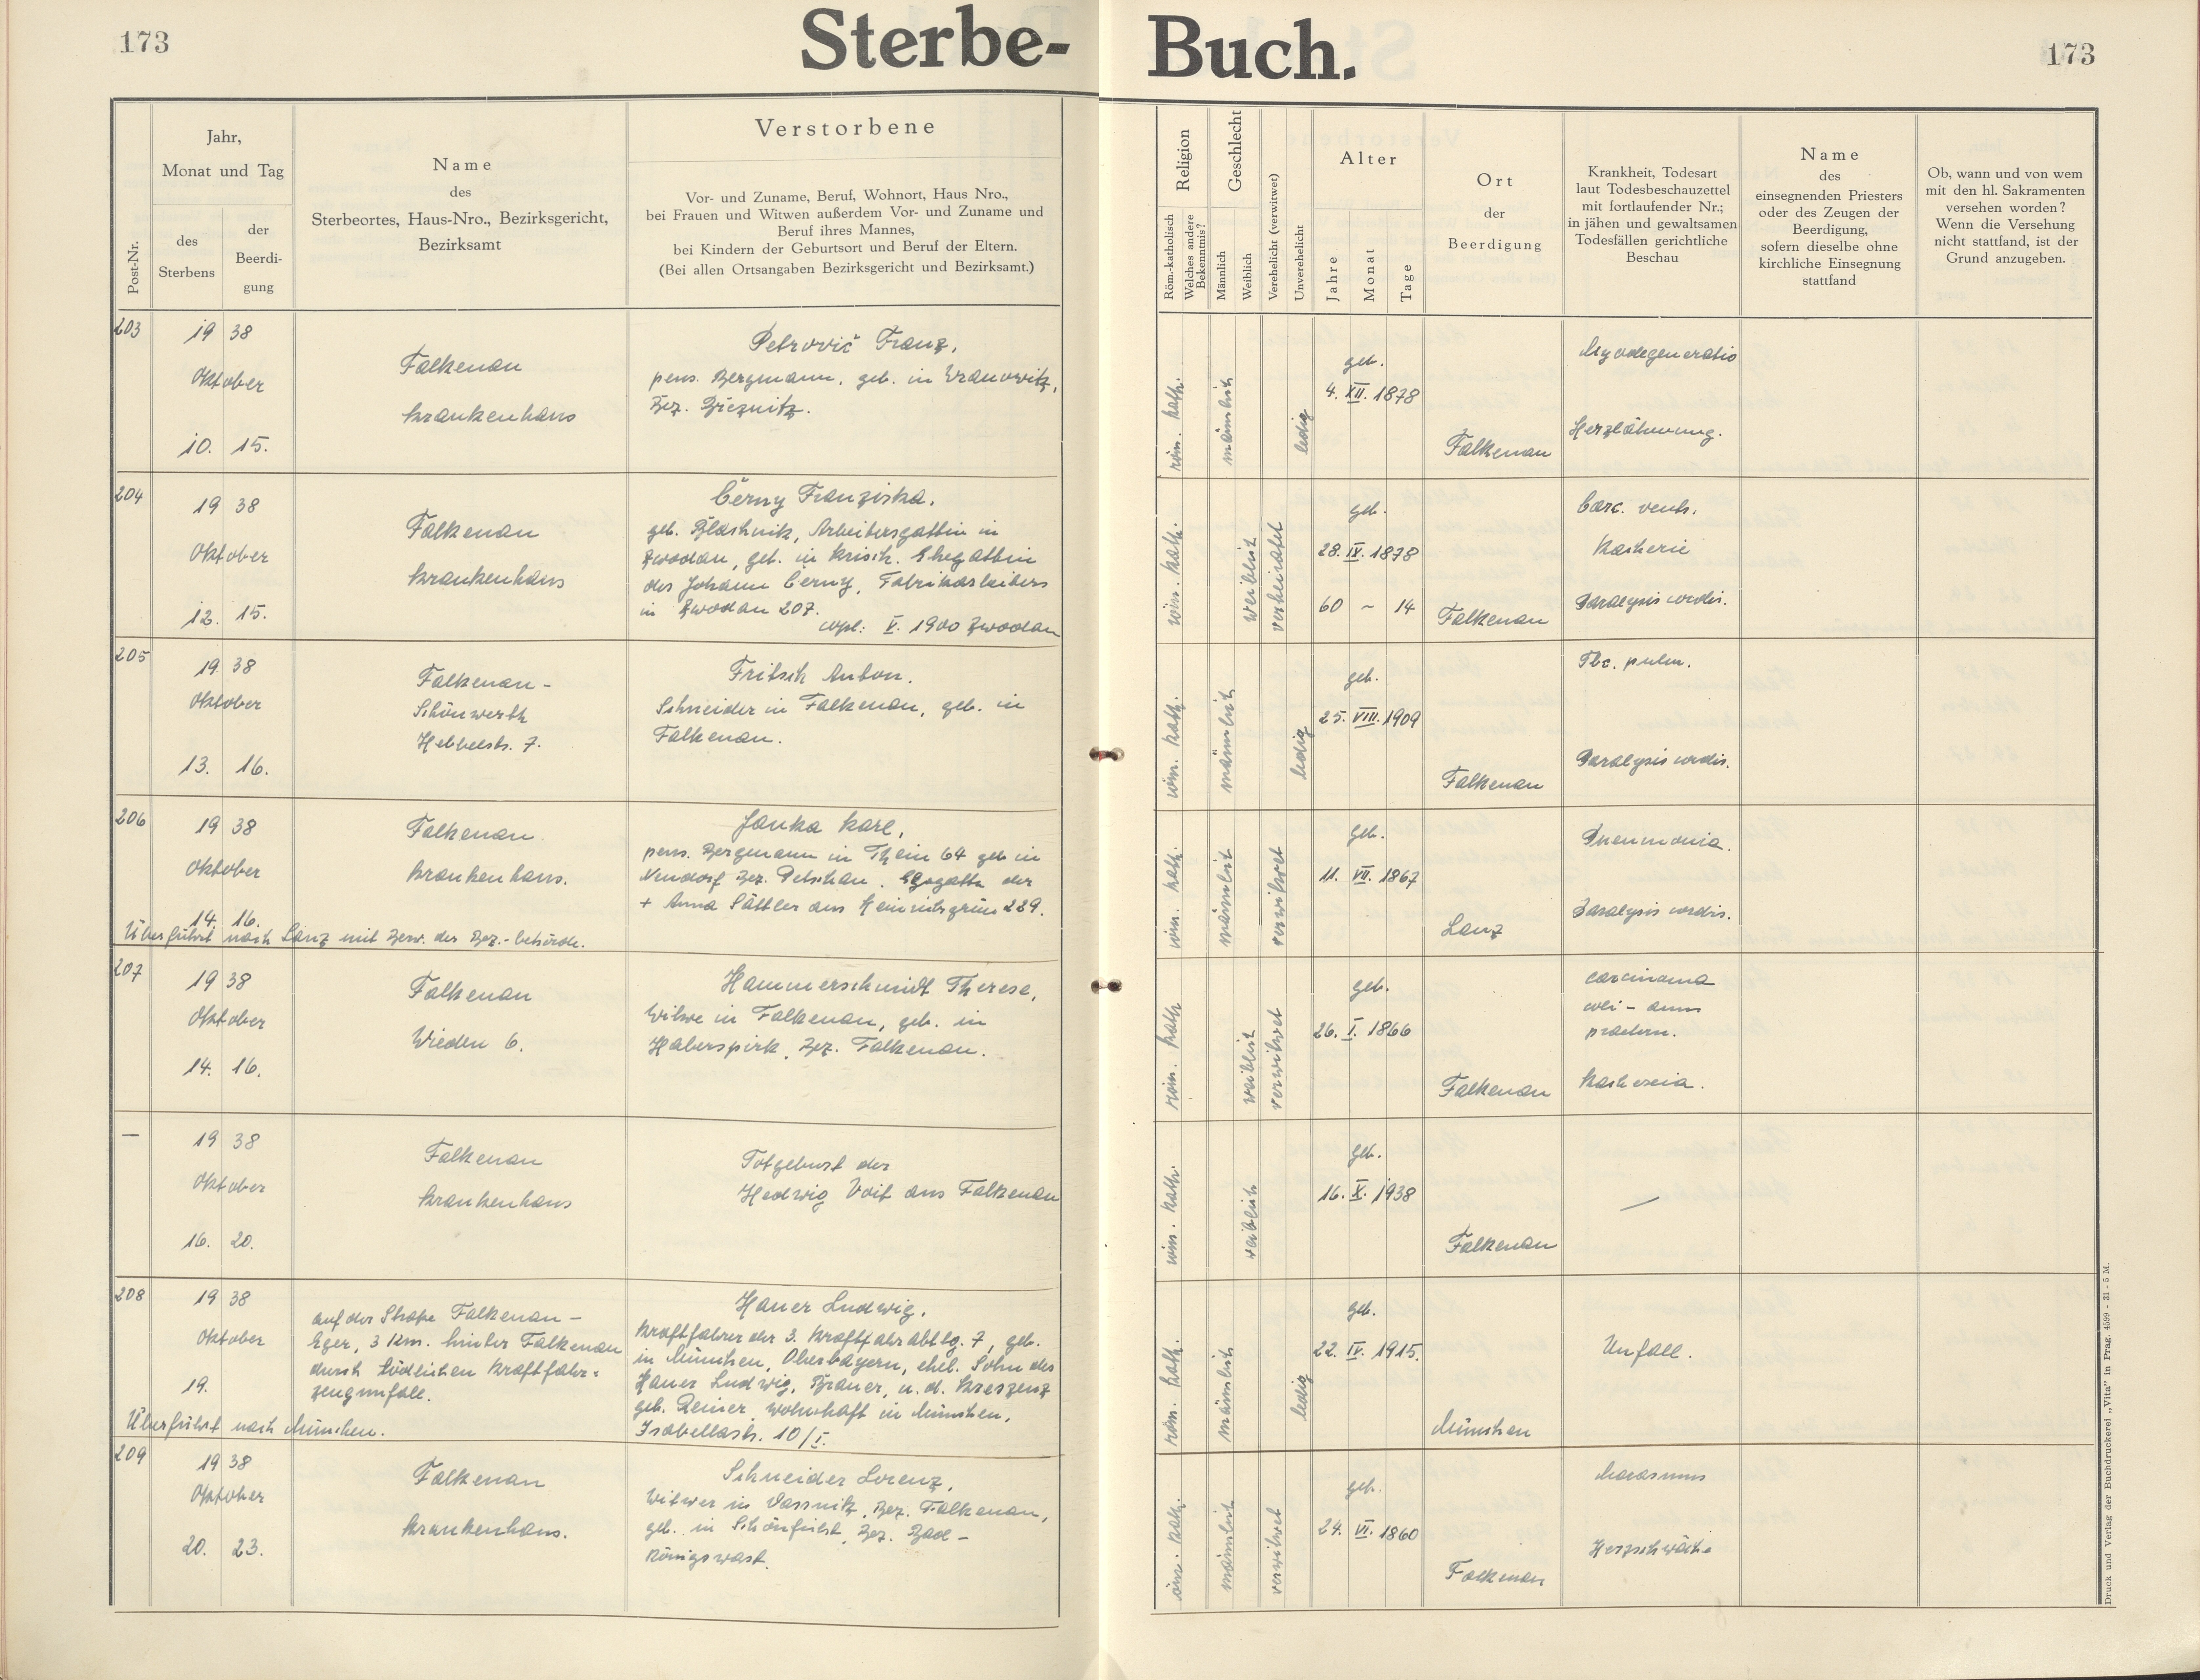 173
Sterbe-Buch.
173
Post-Nr.
Jahr,
Monat und Tag
des
Sterbens
der
Beerdi-
gung
Name
des
Sterbeortes, Haus-Nro., Bezirksgericht,
Bezirksamt
Verstorbene
Vor- und Zuname, Beruf, Wohnort, Haus Nro.,
bei Frauen und Witwen außerdem Vor- und Zuname und
Beruf ihres Mannes,
bei Kindern der Geburtsort und Beruf der Eltern.
(Bei allen Ortsangaben Bezirksgericht und Bezirksamt.)
Religion
Röm.-katholisch
Welches andere
Bekenntnis?
Geschlecht
Männlich
Weiblich
Verehelicht (verwitwet)
Unverehelicht
Alter
Jahre
Monat
Tage
Ort
der
Beerdigung
Krankheit, Todesart
laut Todesbeschauzettel
mit fortlaufender Nr.;
in jähen und gewaltsamen
Todesfällen gerichtliche
Beschau
Name
des
einsegnenden Priesters
oder des Zeugen der
Beerdigung,
sofern dieselbe ohne
kirchliche Einsegnung
stattfand
Ob, wann und von wem
mit den hl. Sakramenten
versehen worden?
Wenn die Versehung
nicht stattfand, ist der
Grund anzugeben.
203
19 38
Oktober
10. 15.
Falkenau
Krankenhaus
Petrovič Franz,
pens. Bergmann, geb. in Wranowitz,
Bez. Březnitz.
röm. kath.
männlich
ledig
geb.
4. XII. 1878
Falkenau
Myodegeneratio
Herzlähmung.
204
19 38
Oktober
12. 15.
Falkenau
Krankenhaus
Černy Franziska,
geb. Blaschnik, Arbeitersgattin in
Zwodau, geb. in Krisch. Ehegattin
des Johann Černy, Fabrikarbeiters
in Zwodau 207.
copul: V. 1900 Zwodau
röm. kath.
weiblich
verheiratet
geb.
28. IX. 1878
60 ~ 14
Falkenau
Carc. ventr.
Kachexie
Paralysis cordis.
205
19 38
Oktober
13. 16.
Falkenau-
Schönwerth
Hebbelstr. 7.
Fritsch Anton.
Schneider in Falkenau, geb. in
Falkenau.
röm. kath.
männlich
ledig
geb.
25. VIII. 1909
Falkenau
Tbc. pulm.
Paralysis cordis.
206
19 38
Oktober
14. 16.
Falkenau
Krankenhaus.
Janka Karl,
pens. Bergmann in Thein 64 geb in
Neudorf Bez. Petschau. Ehegatte der
+ Anna Sättler aus Heinrichsgrün 229.
Überführt nach Lanz mit Bew. der Bez.-behörde.
röm. kath.
männlich
verwitwet
geb.
11. VII. 1867
Lanz
Pneumonia.
Paralysis cordis.
207
19 38
Oktober
14. 16.
Falkenau
Wieden 6.
Hammerschmidt Therese,
Witwe in Falkenau, geb. in
Haberspirk, Bez. Falkenau.
röm. kath
weiblich
verwitwet
geb.
26. I. 1866
Falkenau
carcinoma
Kachexia.
—
19 38
Oktober
16. 20.
Falkenau
Krankenhaus
Totgeburt der
Hedwig Voit aus Falkenau
röm. kath.
weiblich
geb.
16. X. 1938
Falkenau
—
208
19 38
Oktober
19.
auf der Straße Falkenau-
Eger, 3 Km. hinter Falkenau
durch tödlichen Kraftfahr-
zeugunfall.
Hauer Ludwig,
Kraftfahrer der 3. Kraftfahrabtlg. 7, geb.
in München, Oberbayern, ehel. Sohn des
Hauer Ludwig, Brauer, u. d. Kreszenz
geb. Reiner wohnhaft in München,
Isabellastr. 10/I.
Überführt nach München.
röm. kath.
männlich
ledig
geb.
22. IV. 1915.
München
Unfall.
209
19 38
Oktober
20. 23.
Falkenau
Krankenhaus.
Schneider Lorenz,
Witwer in Dassnitz, Bez. Falkenau,
geb. in Schönficht, Bez. Bad-
Königswart.
röm. kath.
männlich
verwitwet
geb.
24. VI. 1860
Falkenau
Marasmus
Herzschwäche
Druck und Verlag der Buchdruckerei „Vita" in Prag. 4599 - 31 - 5 M.